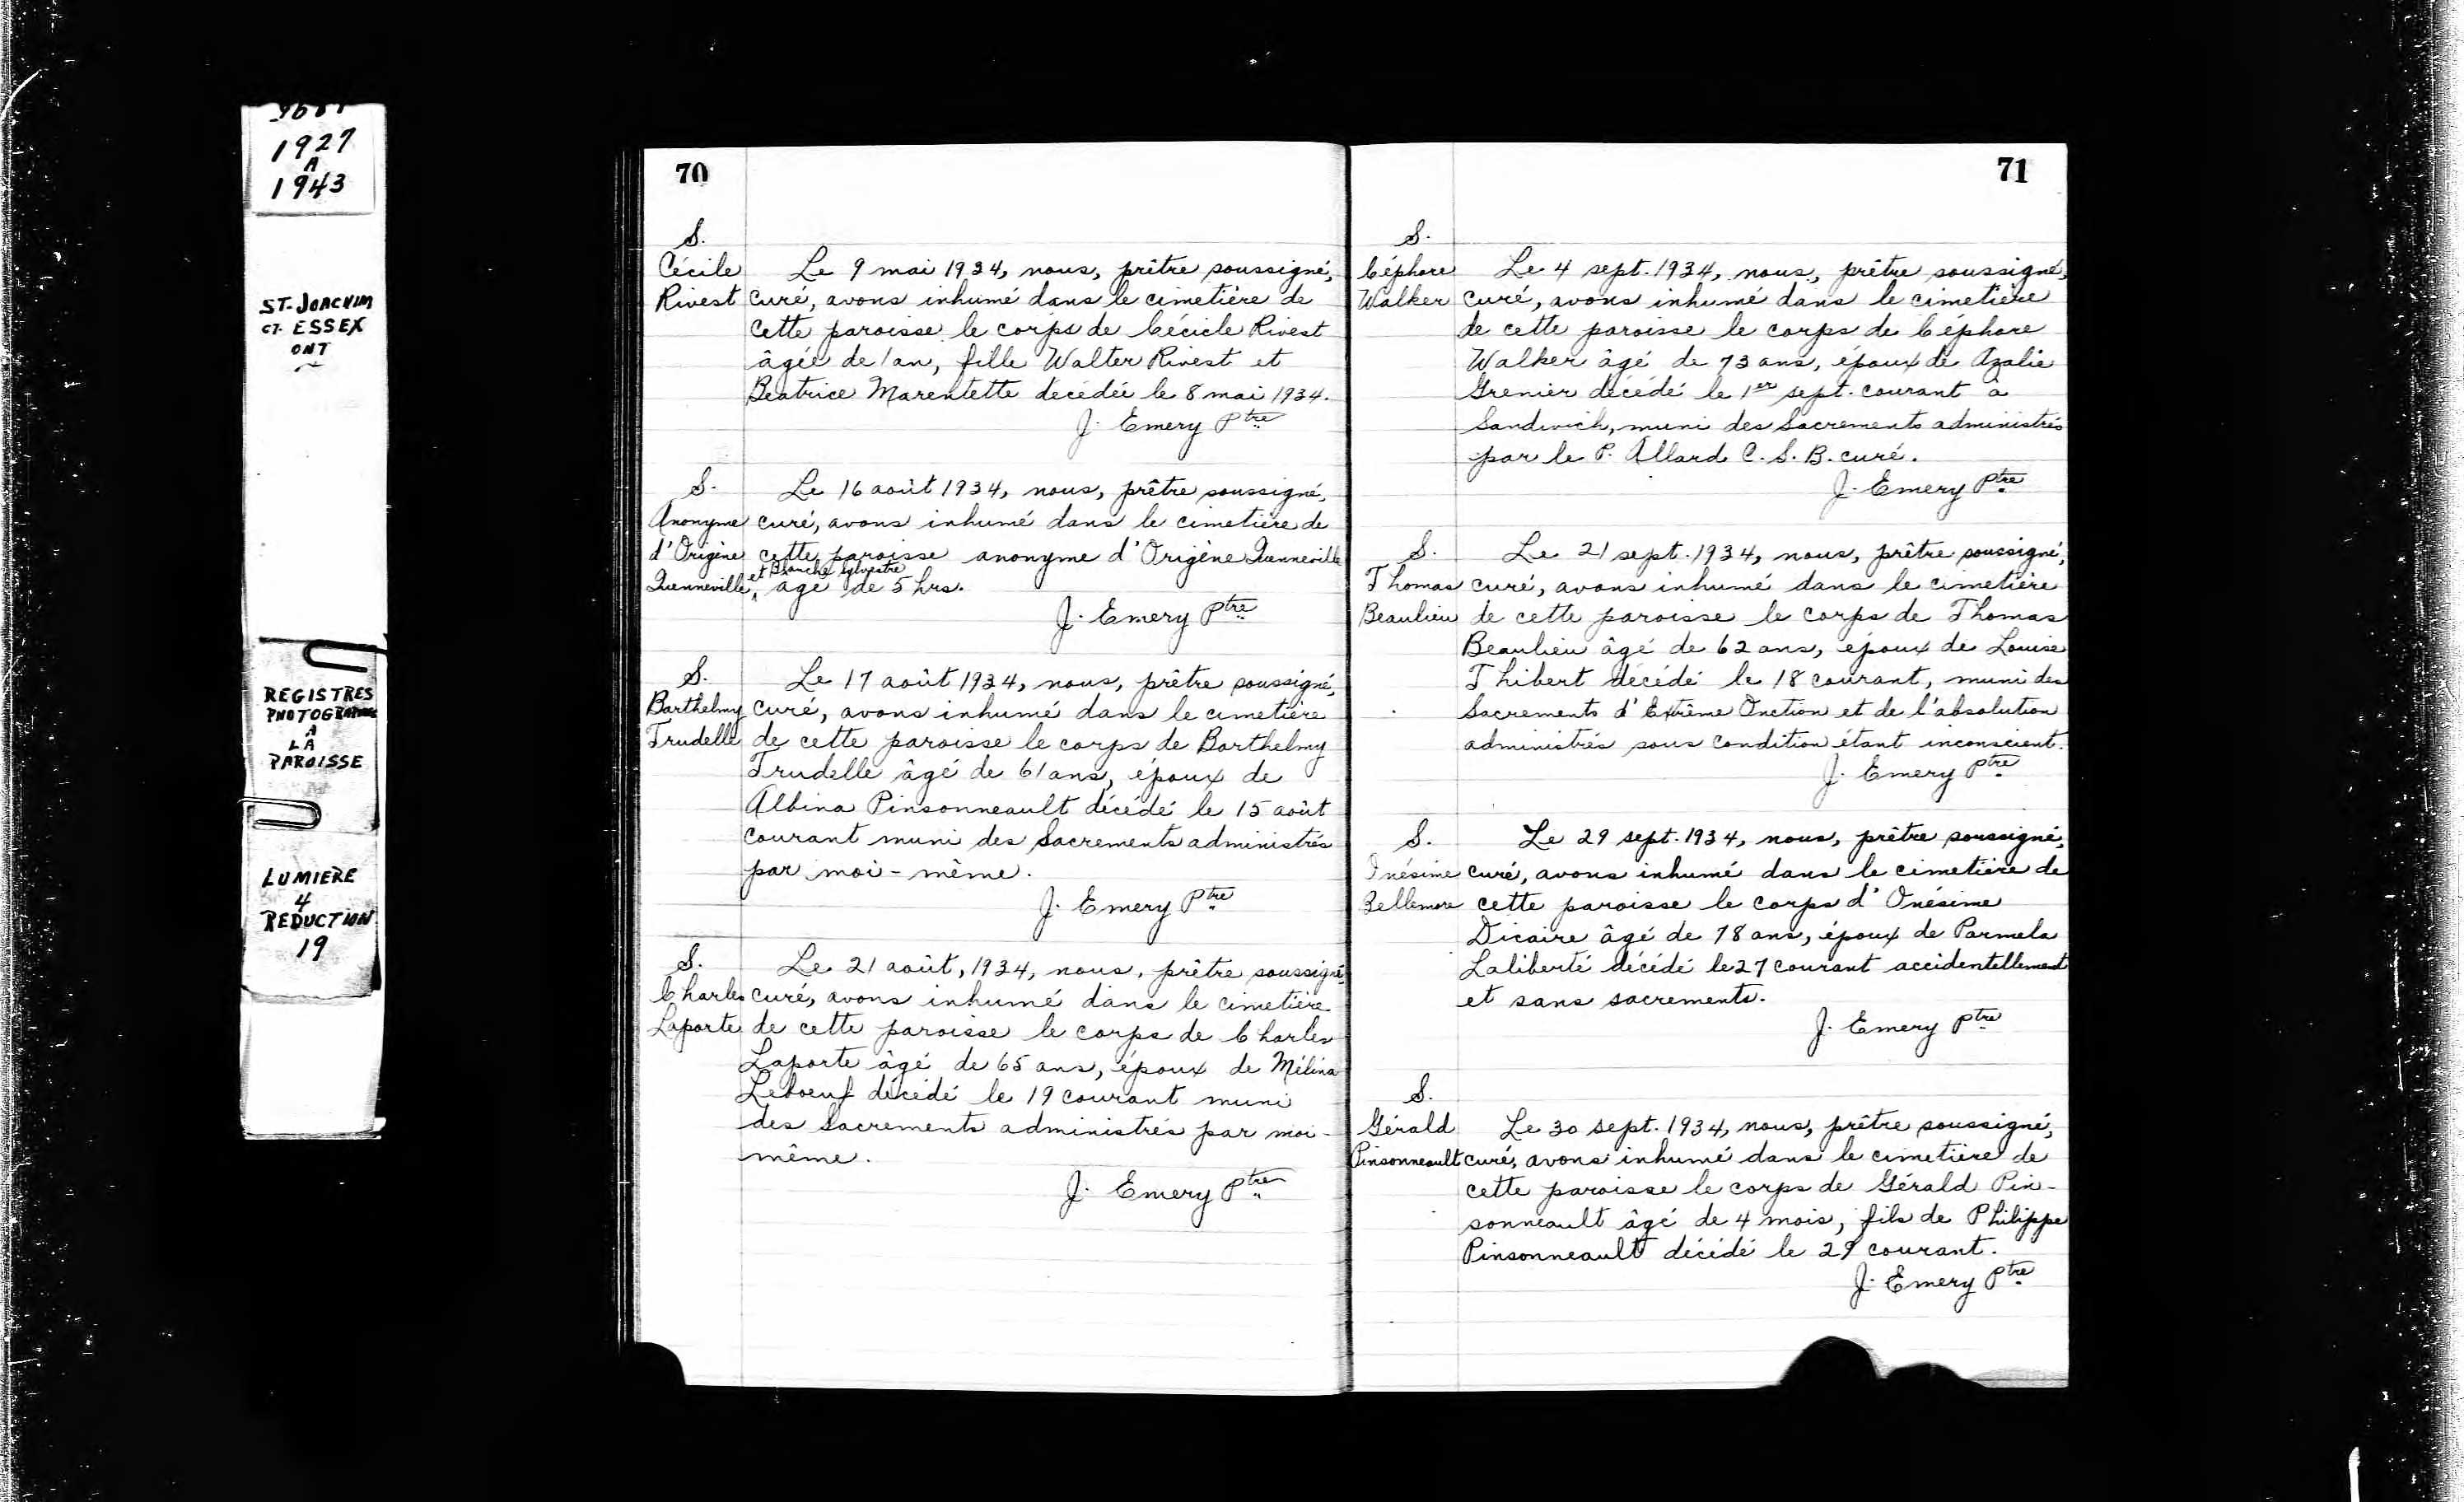 1927
A
1943
ST-JOACHIM
CT. ESSEX
ONT
REGISTRES
PHOTOGRAPHIÉ
A
LA
PAROISSE
LUMIERE
4
REDUCTION
19
70
S.
Cécile
Rivest
Le 9 mai 1934, nous, prêtre soussigné,
curé, avons inhumé dans le cimetière de
cette paroisse le corps de Cécicle Rivest
âgée de 1 an, fille Walter Rivest et
Beatrice Marentette décédée le 8 mai 1934.
J. Emery Ptre
S.
Anonyme
d'Origène
Quenneville
Le 16 août 1934, nous, prêtre soussigné,
curé, avons inhumé dans le cimetière de
cette paroisse anonyme d'Origène Quenneville
et Blanche Sylvestre
âgé de 5 hrs.
J. Emery Ptre
S.
Barthelmy
Trudelle
Le 17 août 1934, nous, prêtre soussigné,
curé, avons inhumé dans le cimetière
de cette paroisse le corps de Barthelmy
Trudelle âgé de 61 ans, époux de
Albina Pinsonneault décédé le 15 août
courant muni des Sacrements administrés
par moi-même.
J. Emery Ptre
S.
Charles
Laporte
Le 21 août, 1934, nous, prêtre soussigné,
curé, avons inhumé dans le cimetière
de cette paroisse le corps de Charles
Laporte âgé de 65 ans, époux de Mélina
Leboeuf décédé le 19 courant muni
des Sacrements administrés par moi-
même.
J. Emery Ptre
71
S.
Céphore
Walker
Le 4 sept. 1934, nous, prêtre soussigné,
curé, avons inhumé dans le cimetière
de cette paroisse le corps de Céphore
Walker âgé de 73 ans, époux de Azalie
Grenier décédé le 1er sept. courant à
Sandwich, muni des Sacrements administrés
par le P. Allard C. S. B. curé.
J. Emery Ptre
S.
Thomas
Beaulieu
Le 21 sept. 1934, nous, prêtre soussigné,
curé, avons inhumé dans le cimetière
de cette paroisse le corps de Thomas
Beaulieu âgé de 62 ans, époux de Louise
Thibert décédé le 18 courant, muni des
Sacrements d'Extrême Onction et de l'absolution
administrés sous condition étant inconscient.
J. Emery Ptre
S.
Onésime
Bellemore
Le 29 sept. 1934, nous, prêtre soussigné,
curé, avons inhumé dans le cimetière de
cette paroisse le corps d'Onésime
Dicaire âgé de 78 ans, époux de Parmela
Laliberté décédé le 27 courant accidentellement
et sans sacrements.
J. Emery Ptre
S.
Gérald
Pinsonneault
Le 30 sept. 1934, nous, prêtre soussigné,
curé, avons inhumé dans le cimetière de
cette paroisse le corps de Gérald Pin-
sonneault âgé de 4 mois, fils de Philippe
Pinsonneault décédé le 29 courant.
J. Emery Ptre